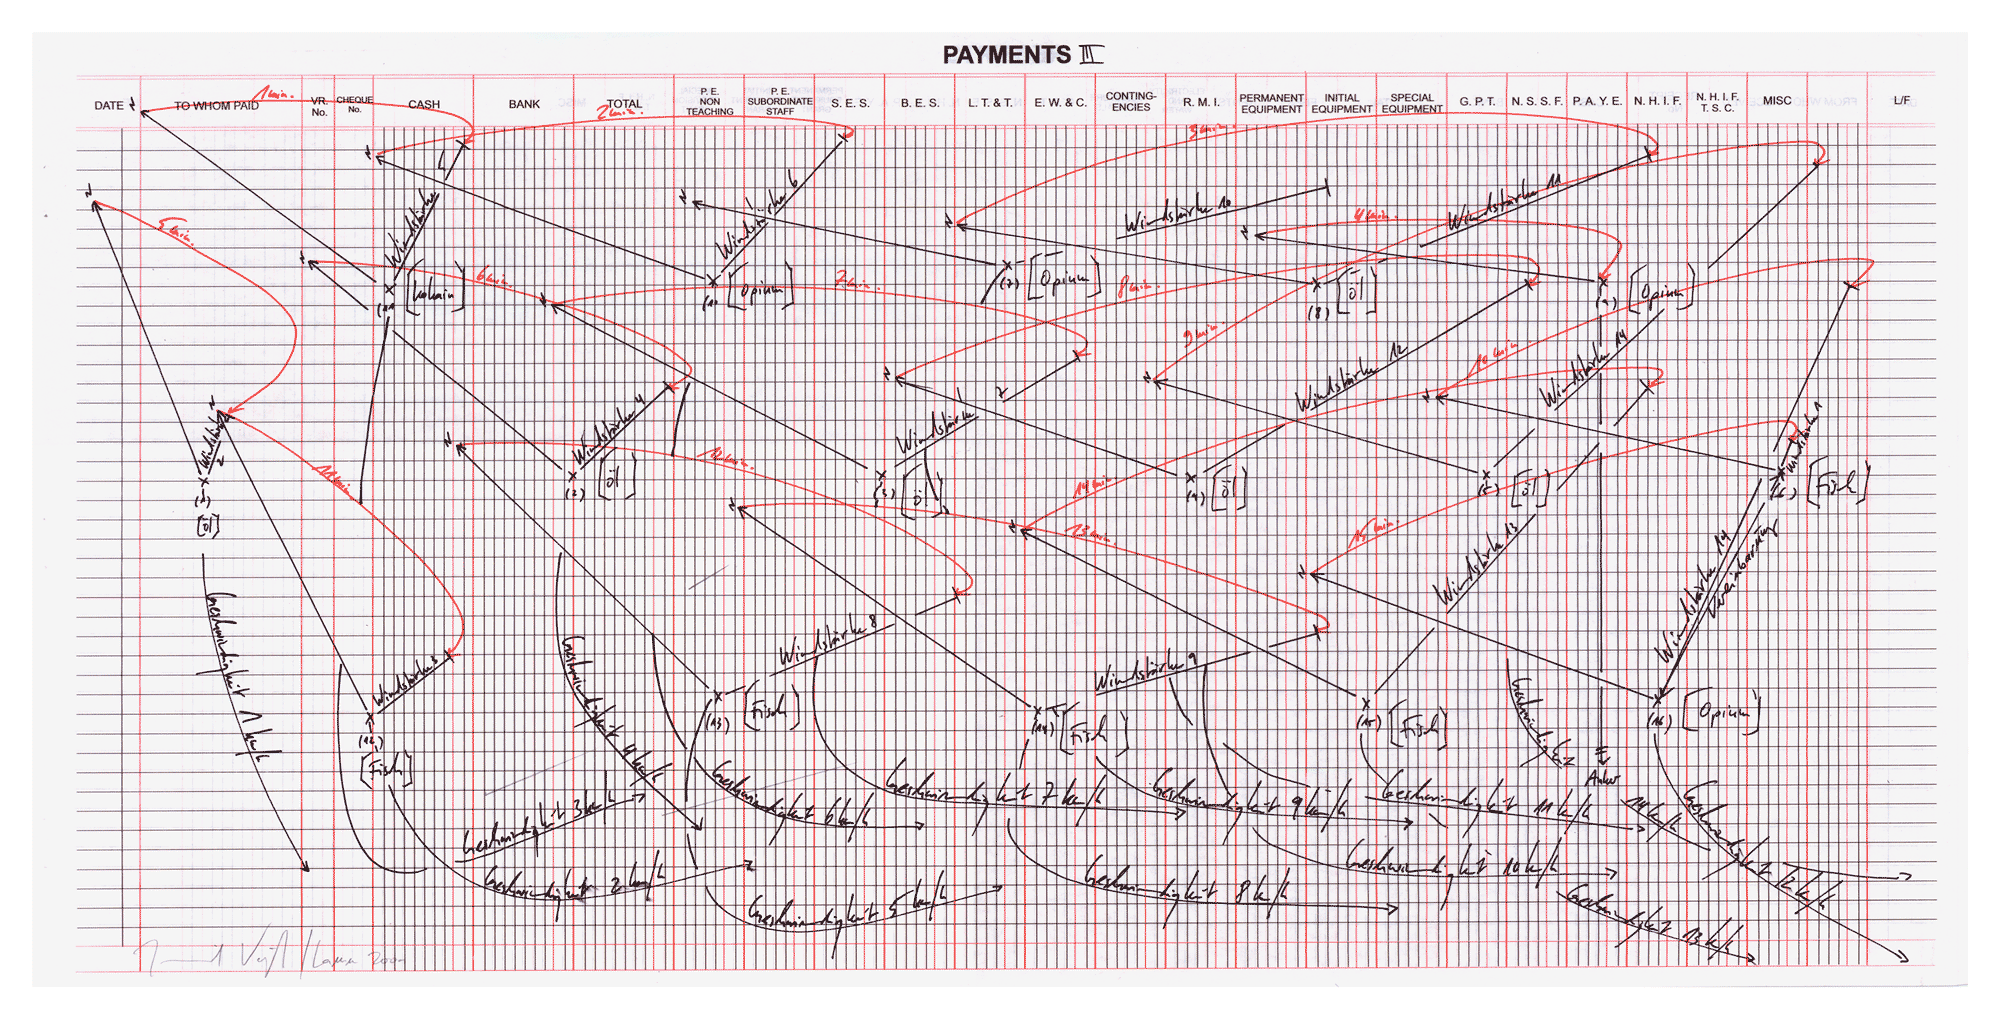 PAYMENTS III
DATE
TO WHOM PAID
VR. No.
CHEQUE No.
CASH
BANK
TOTAL
P. E. NON TEACHING
P. E. SUBORDINATE STAFF
S. E. S.
B. E. S.
L. T. & T.
E. W. & C.
CONTING-ENCIES
R. M. I.
PERMANENT EQUIPMENT
INITIAL EQUIPMENT
SPECIAL EQUIPMENT
G. P. T.
N. S. S. F.
P. A. Y. E.
N. H. I. F.
N. H. I. F. T. S. C.
MISC
L/F
1 min.
2 min.
3 min.
4 min.
5 min.
6 min.
7 min.
8 min.
9 min.
10 min
11 min.
12 min.
13 min.
14 min
15 min.
Windstärke
Windstärke 6
Windstärke 10
Windstärke 11
[Kokain]
(10) [Opium]
(7) [Opium]
(8) [öl]
(9) [Opium]
Windstärke 12
Windstärke 14
Windstärke 4
Windstärke 7
Windstärke 2
Windstärke 1
(1) [öl]
(2) [öl]
(3) [öl]
(4) [öl]
(5) [öl]
(6) [Fisch]
Windstärke 13
Windstärke 14
Vereinbarung
Windstärke 8
Windstärke 9
Windstärke 3
(12) [Fisch]
(13) [Fisch]
(14) [Fisch]
(15) [Fisch]
(16) [Opium]
Anker
Geschwindigkeit 1 km/h
Geschwindigkeit 4 km/h
Geschwindigkeit 3 km/h
Geschwindigkeit 6 km/h
Geschwindigkeit 7 km/h
Geschwindigkeit 9 km/h
Geschwindigkeit 11 km/h
14 km/h
Geschwindigkeit 2 km/h
Geschwindigkeit 5 km/h
Geschwindigkeit 8 km/h
Geschwindigkeit 10 km/h
Geschwindigkeit 12 km/h
Geschwindigkeit 13 km/h